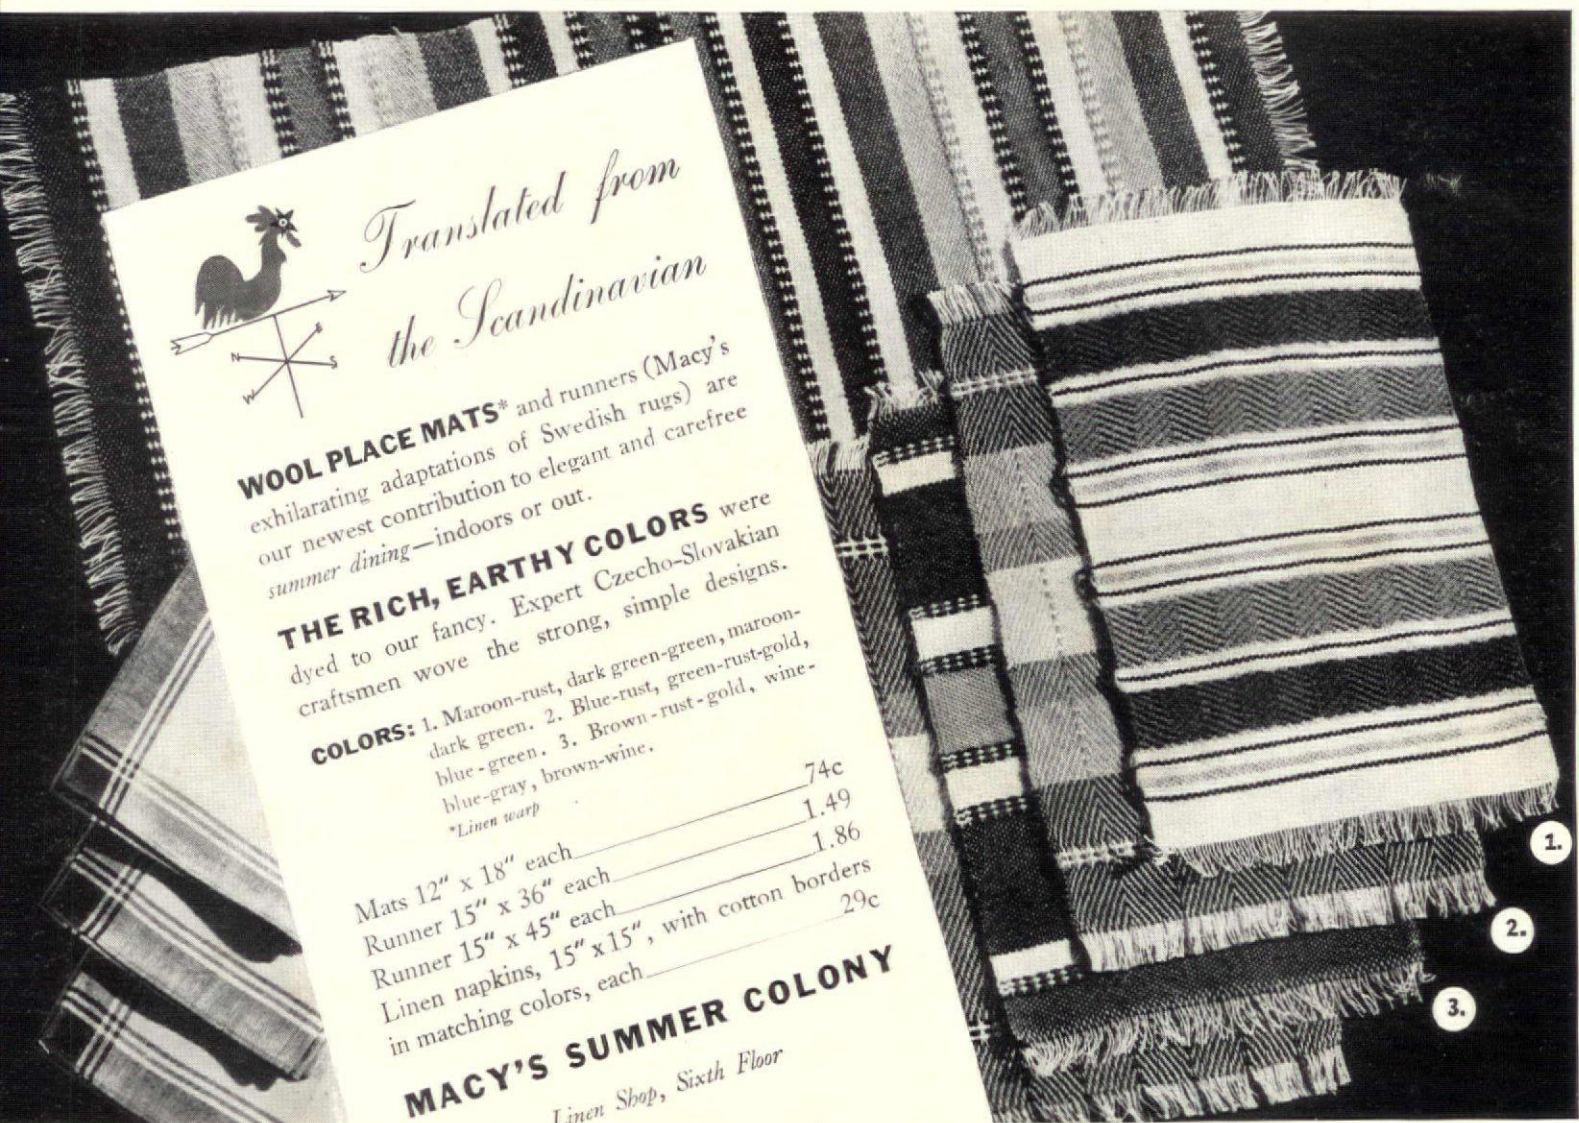 Translated from
the Scandinavian
N
S
W
WOOL PLACE MATS* and runners (Macy's
exhilarating adaptations of Swedish rugs) are
our newest contribution to elegant and carefree
summer dining—indoors or out.
THE RICH, EARTHY COLORS were
dyed to our fancy. Expert Czecho-Slovakian
craftsmen wove the strong, simple designs.
COLORS: 1. Maroon-rust, dark green-green, maroon-
dark green. 2. Blue-rust, green-rust-gold,
blue-green. 3. Brown-rust-gold, wine-
blue-gray, brown-wine.
*Linen warp
Mats 12" x 18" each 74c
Runner 15" x 36" each 1.49
Runner 15" x 45" each 1.86
Linen napkins, 15" x 15", with cotton borders
in matching colors, each 29c
MACY'S SUMMER COLONY
Linen Shop, Sixth Floor
1.
2.
3.